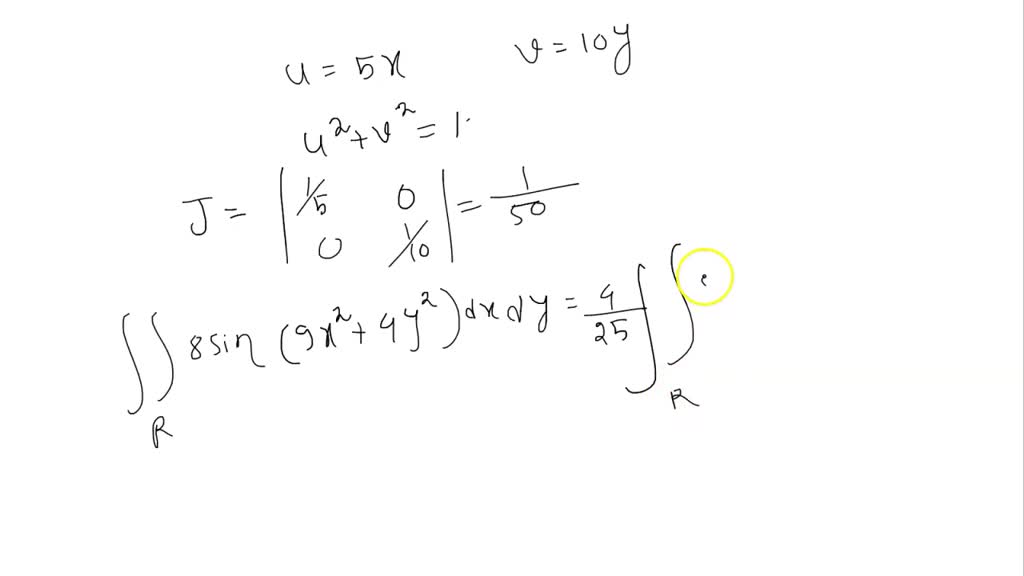 u = 5x v = 10y
u² + v² = 1.
J = | 1/5 0 | = 1/50
| 0 1/10 |
∬ 8 sin (9x² + 4y²) dx dy = 4/25 ∬
R R